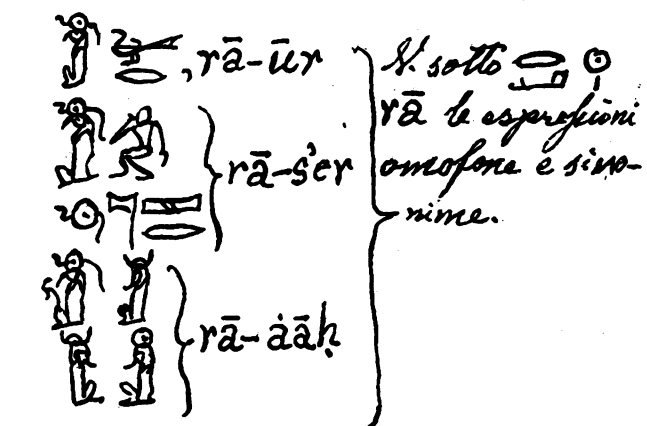 , rā-ūr
rā-s'er
rā-ȧāḥ
N. sotto
rā le espressioni
omofone e sino-
nime.